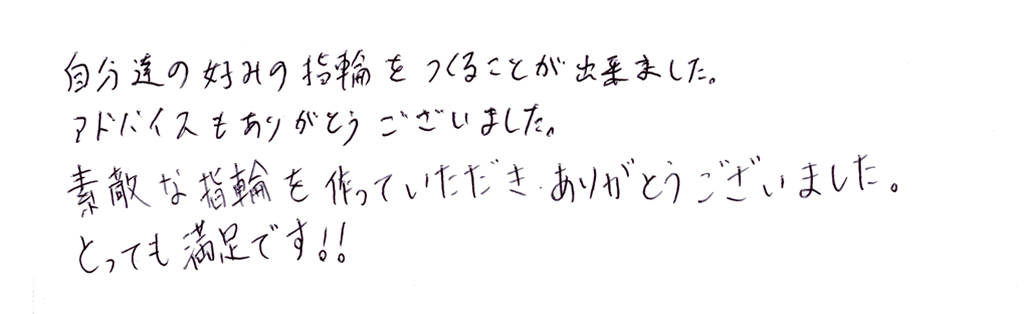 自分達の好みの指輪をつくることが出来ました。
アドバイスもありがとうございました。
素敵な指輪を作っていただき、ありがとうございました。
とっても満足です!!